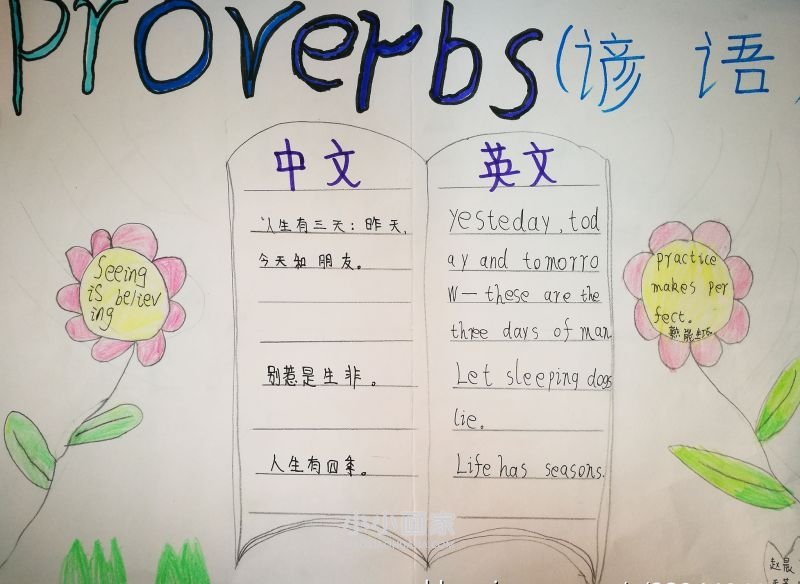 Proverbs (谚语)
中文
人生有三天：昨天,
今天知朋友。
别惹是生非。
人生有四季。
英文
Yesteday, tod
ay and tomorro
w— these are the
three days of man
Let sleeping dogs
lie.
Life has seasons.
Seeing
is believ
ing
practice
makes per
fect.
熟能生巧
小小画家
赵晨